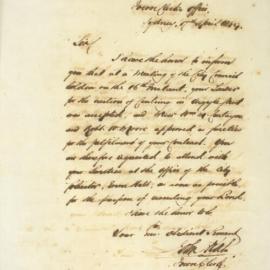 Town Clerk's Office,
Sydney, 17th April 1844
Sir
I have the honor to inform
you that at a Meeting of the City Council
holden on the 16th Instant, your Tender
for the erection of in Argyle Street
was accepted, and
and approved as Sureties
for the fulfilment of your Contract. You
are therefore requested to attend with
your Sureties at the Office of the City
Solicitor, Town Hall, as soon as possible
for the purpose of executing your Bond.
I have the honor &c
Your Obedient Servant
Town Clerk